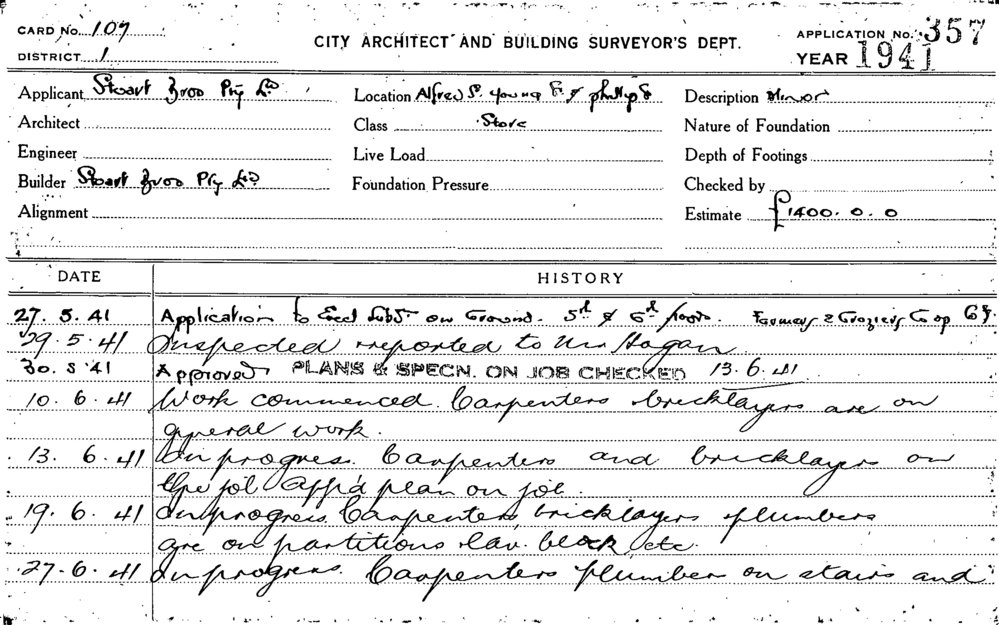 CARD No. 107
CITY ARCHITECT AND BUILDING SURVEYOR'S DEPT.
APPLICATION No. 357
DISTRICT 1
YEAR 1941
Applicant Stuart Bros Pty Ltd
Location Alfred St. Young St. & Phillip St
Description Minor
Architect
Class Store
Nature of Foundation
Engineer
Live Load
Depth of Footings
Builder Stuart Bros Pty Ltd
Foundation Pressure
Checked by
Alignment
Estimate £1400.0.0
DATE
HISTORY
27.5.41 Application to Erect on Ground. 5th & 6th floors. Farmers & Graziers Co op
29.5.41 Inspected & reported to Mr Hogan
30.5.41 Approved PLANS & SPECN. ON JOB CHECKED 13.6.41
10.6.41 Work commenced. Carpenters & bricklayers are on
general work.
13.6.41 In progress. Carpenters and bricklayers on
the job App'd plan on job.
19.6.41 In progress. Carpenters, bricklayers & plumbers
are on partitions & lav. block, etc
27.6.41 In progress. Carpenters & plumber on stairs and